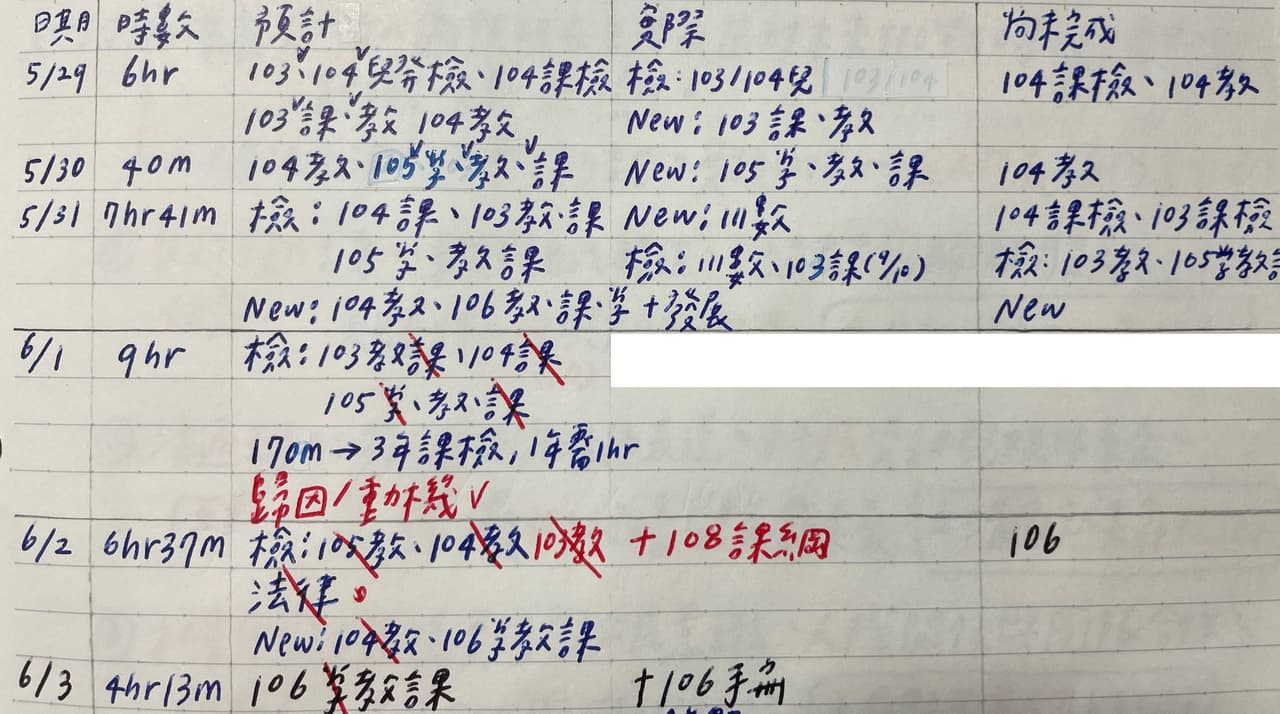 日期 時數 預計 實際 尚未完成
5/29 6hr 103、104兒發檢、104課檢 檢:103/104兒 103/104 104課檢、104教
103課、教 104教 New:103課、教
5/30 40m 104教、105學、教、課 New:105學、教、課 104教
5/31 7hr41m 檢:104課、103教、課 New:111數 104課檢、103課檢
105學、教課 檢:111數、103課(9/10) 檢:103教、105學教
New:104教、106教、課、學+發展 New
6/1 9hr 檢:103教課、104課
105學、教、課
170m→3年課檢,1年需1hr
歸因/動機✓
6/2 6hr37m 檢:105教、104教 103教 +108課綱 106
法律。
New:104教、106學教課
6/3 4hr13m 106學教課 +106手冊